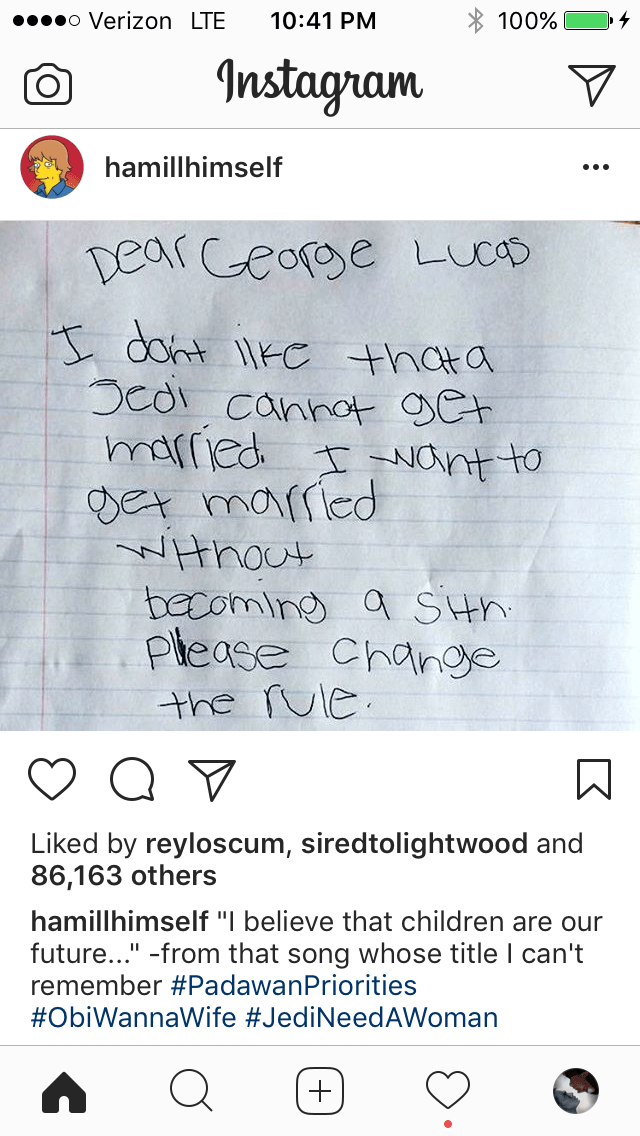 Verizon LTE 10:41 PM 100%
Instagram
hamillhimself
Dear George Lucas
I don't like that a
Jedi cannot get
married. I want to
get married
without
becoming a Sith.
Please change
the rule.
Liked by reyloscum, siredtolightwood and
86,163 others
hamillhimself "I believe that children are our
future..." -from that song whose title I can't
remember #PadawanPriorities
#ObiWannaWife #JediNeedAWoman